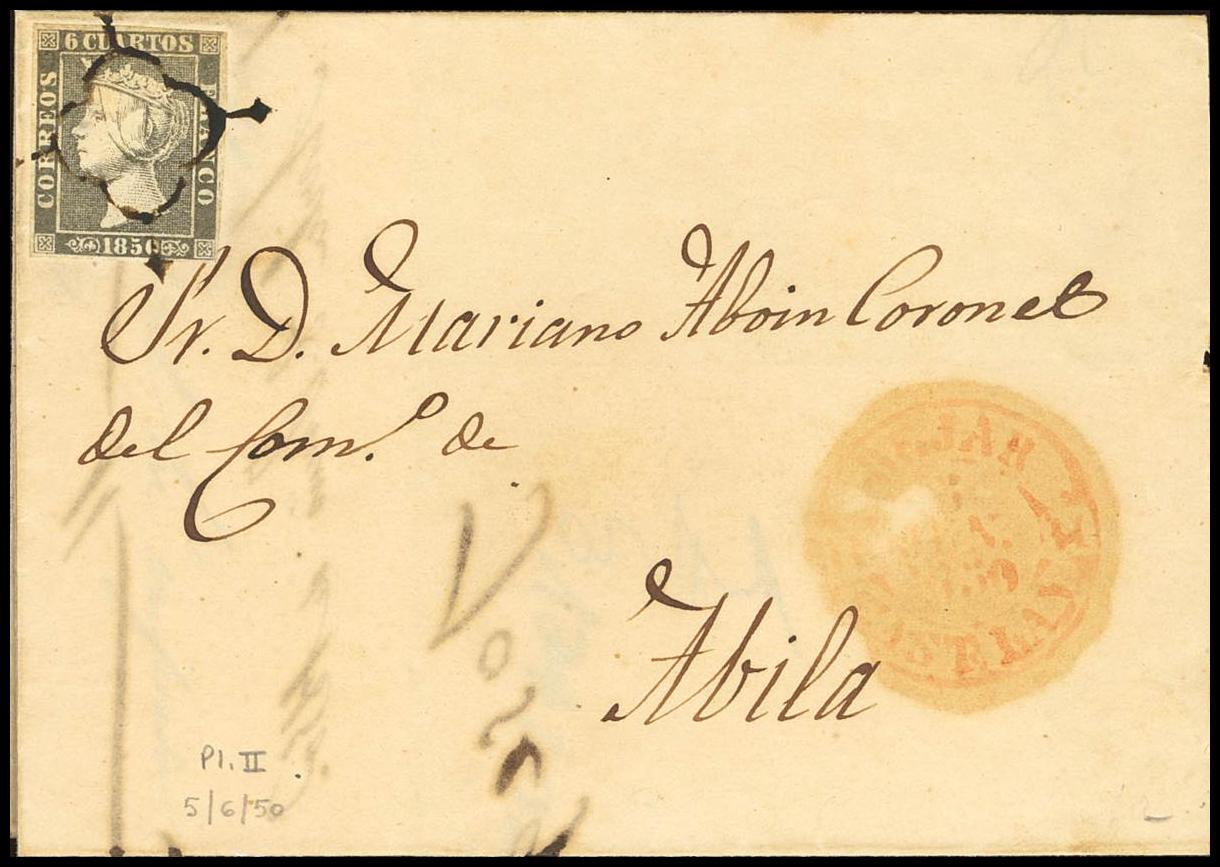 6 CUARTOS
CORREOS
FRANCO
1850
Sr. D. Mariano Aboin Coronel
del Com.º de
Abila
Pl. II
5/6/50